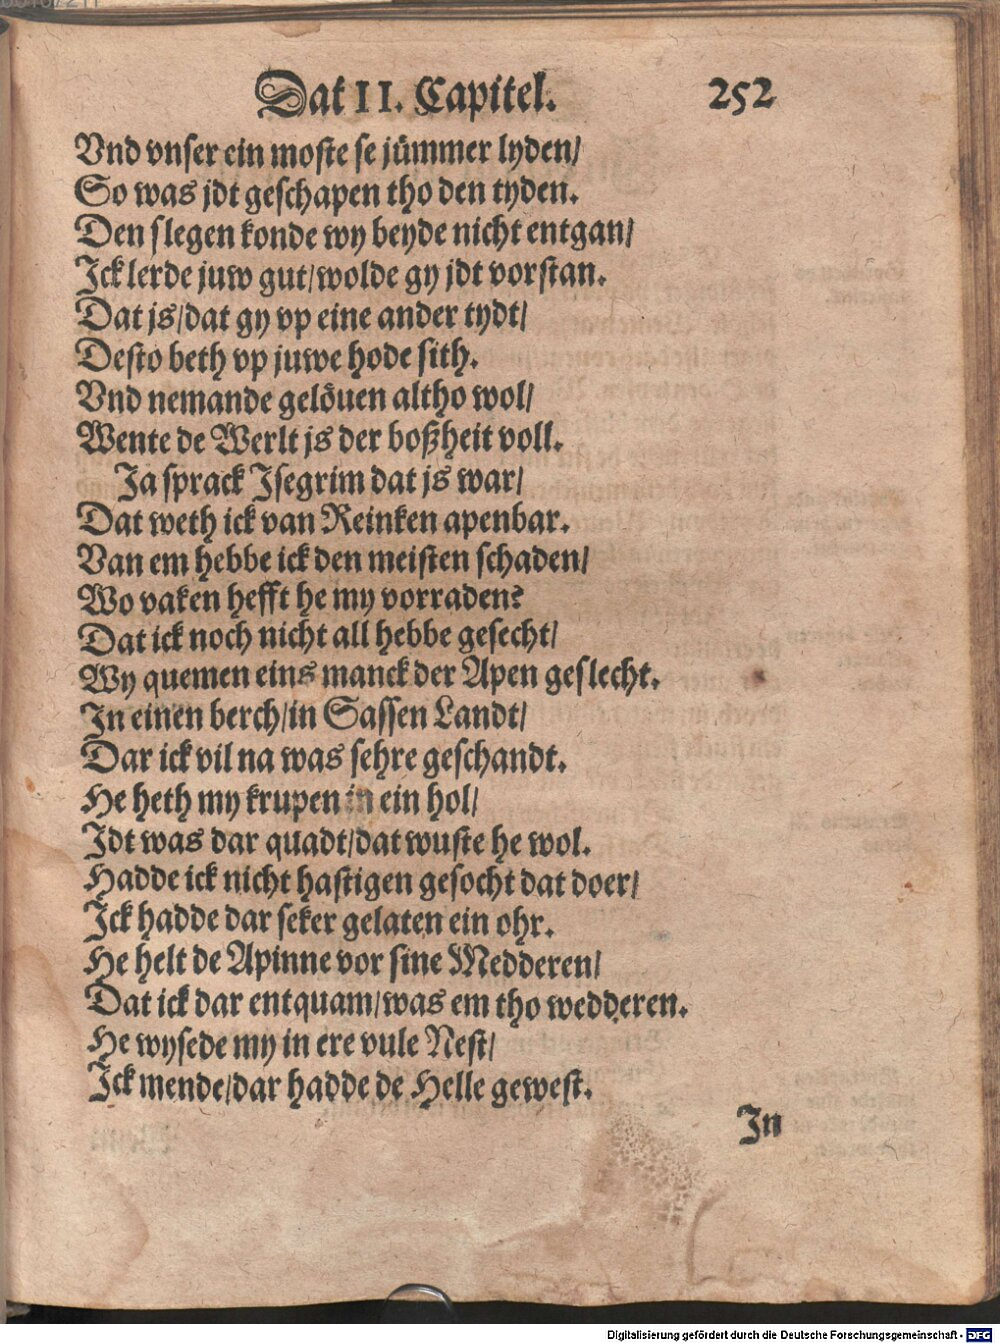 Dat II. Capitel. 252
Vnd vnser ein moste se jümmer lyden/
So was jdt geschapen tho den tyden.
Den slegen konde wy beyde nicht entgan/
Ick lerde juw gut/wolde gy jdt vorstan.
Dat js/dat gy vp eine ander tydt/
Desto beth vp juwe hode sith.
Vnd nemande gelöuen altho wol/
Wente de Werlt js der boßheit voll.
Ja sprack Isegrim dat js war/
Dat weth ick van Reinken apenbar.
Van em hebbe ick den meisten schaden/
Wo vaken hefft he my vorraden?
Dat ick noch nicht all hebbe gesecht/
Wy quemen eins manck der Apen geslecht.
In einen berch/in Sassen Landt/
Dar ick vil na was sehre geschandt.
He heth my krupen in ein hol/
Idt was dar quadt/dat wuste he wol.
Hadde ick nicht hastigen gesocht dat doer/
Ick hadde dar seker gelaten ein ohr.
He helt de Apinne vor sine Medderen/
Dat ick dar entquam/was em tho wedderen.
He wysede my in ere vule Nest/
Ick mende/dar hadde de Helle gewest.
In
Digitalisierung gefördert durch die Deutsche Forschungsgemeinschaft - DFG